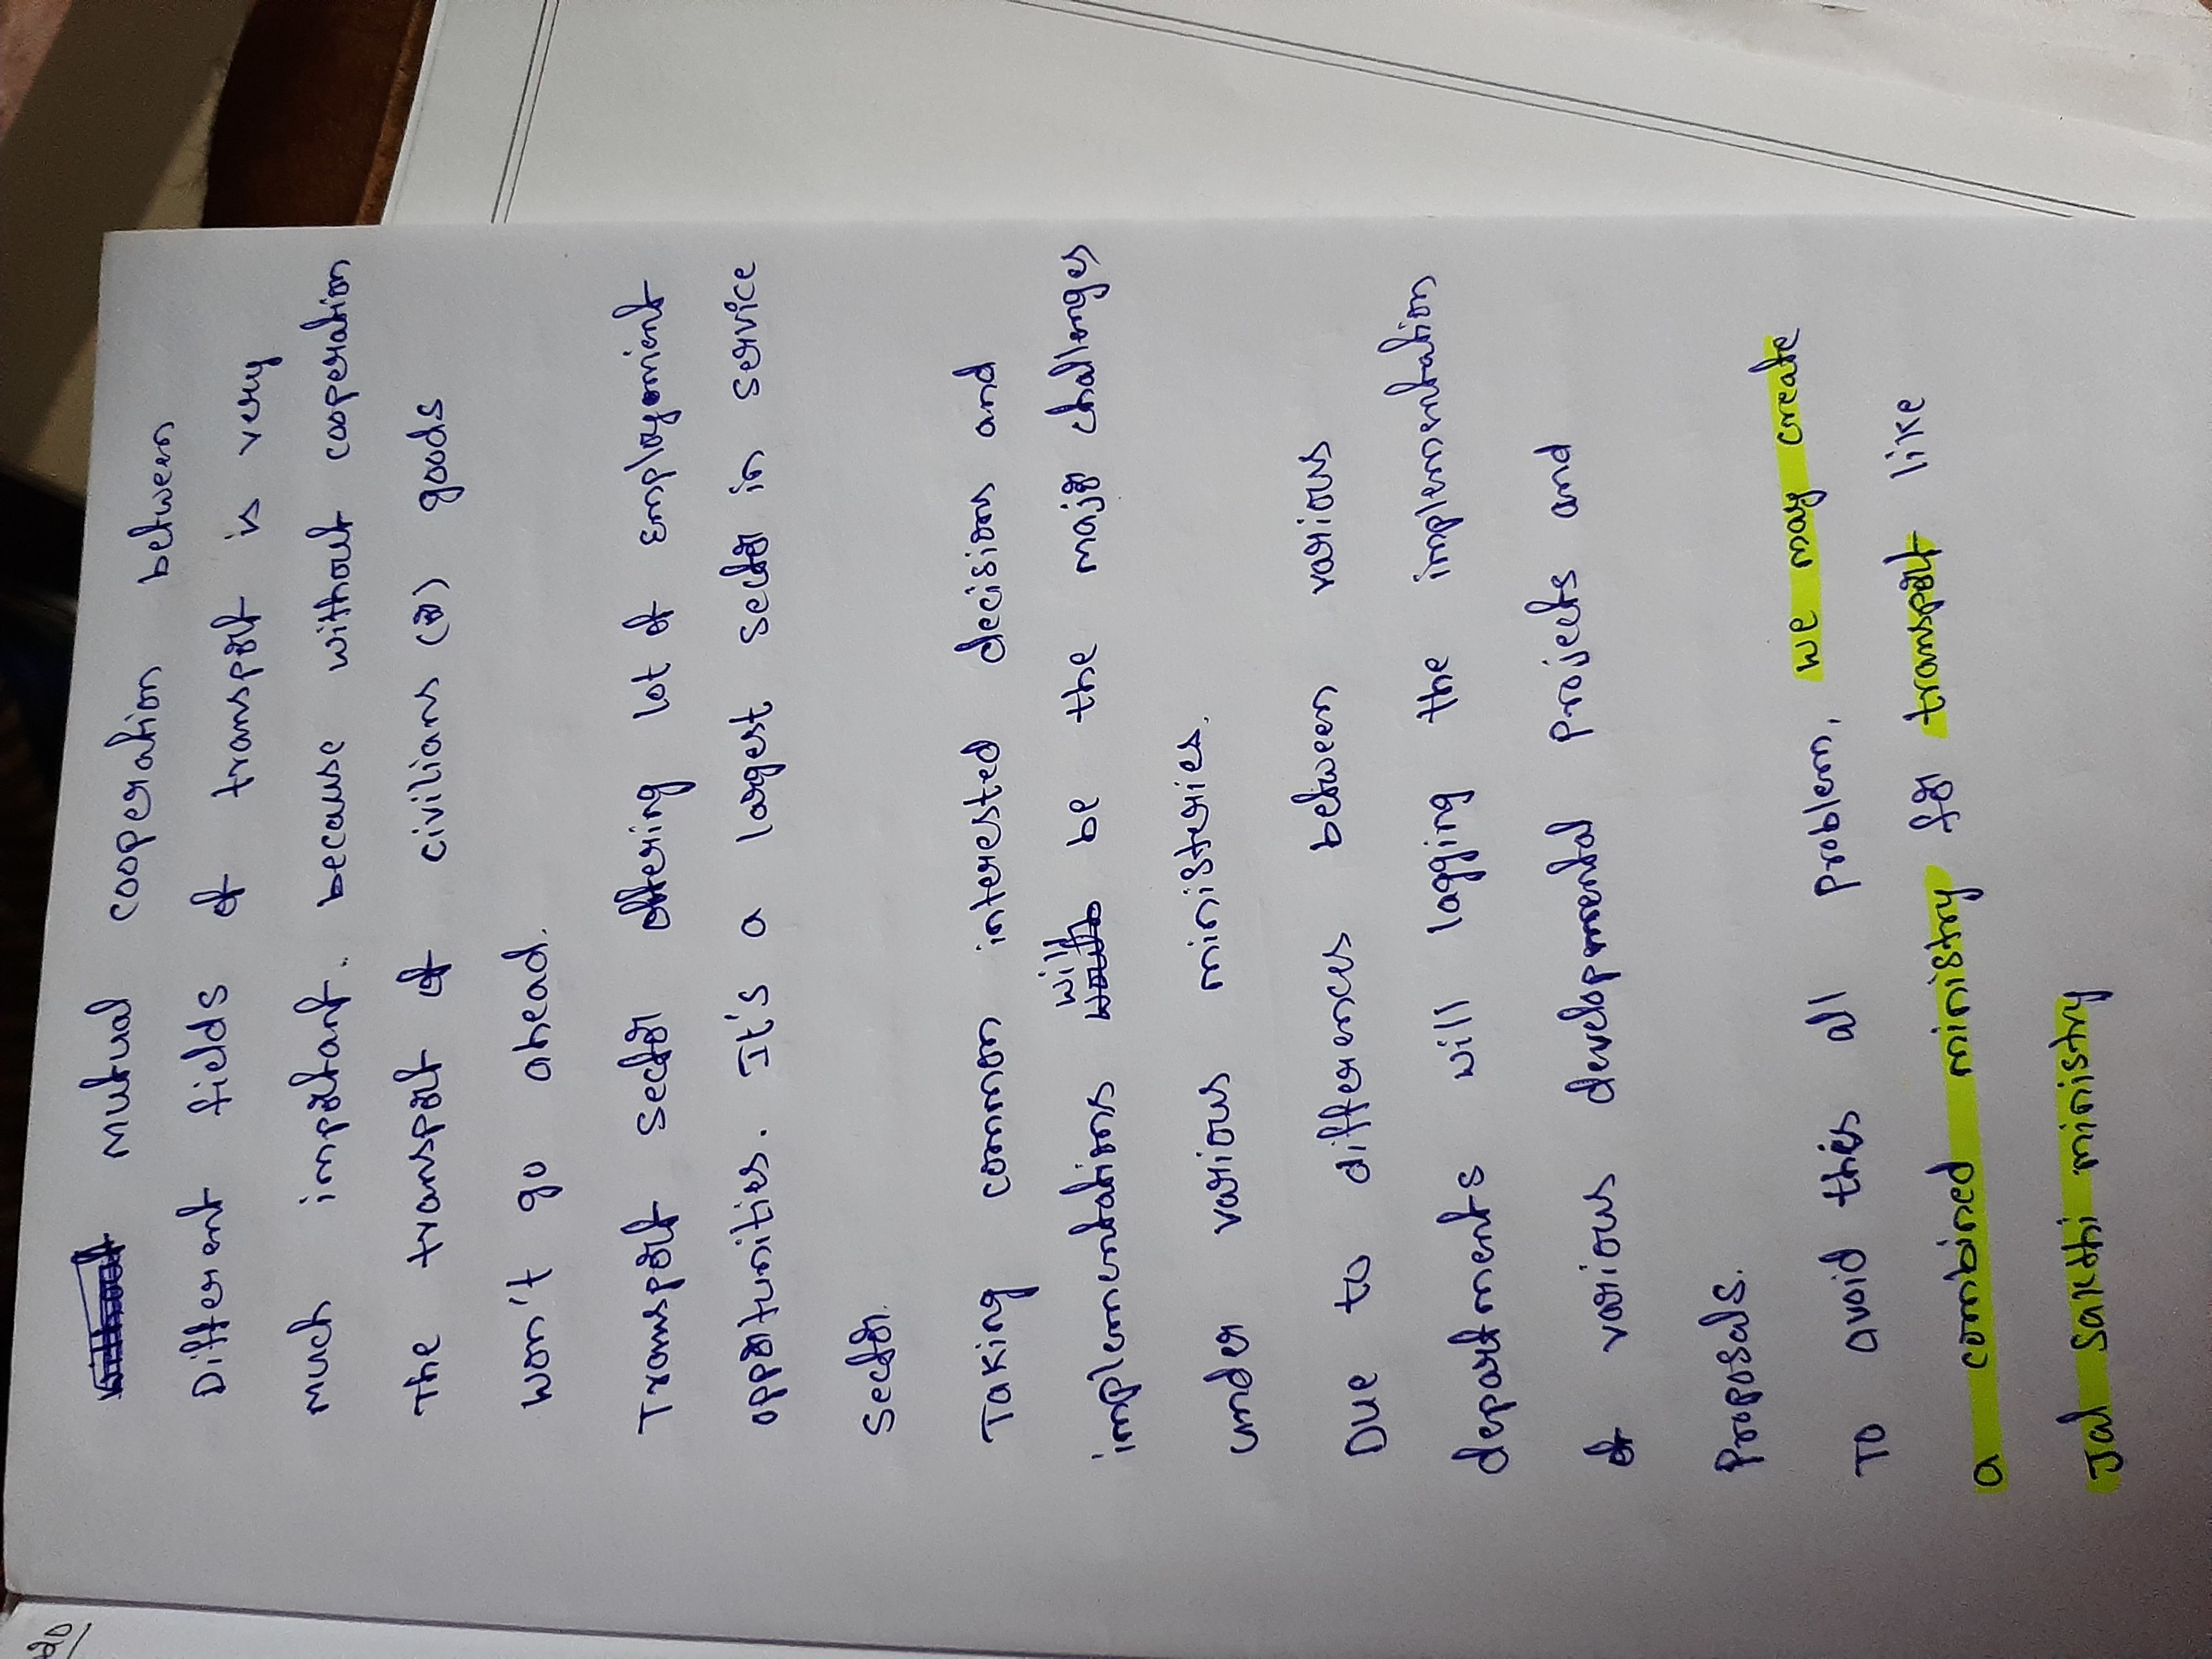 Mutual cooperation between
Different fields of transport is very
much important. because without cooperation
the transport of civilians (or) goods
won't go ahead.
Transport sector offering lot of Employment
opportunities. It's a largest sector in service
sector.
Taking common interested decisions and
implementations will be the major challenges
under various ministeries.
Due to differences between various
departments will lagging the implementation
of various developmental projects and
Proposals.
To avoid this all problem, we may create
a combined ministry for transport like
Jal Sakthi ministry
20